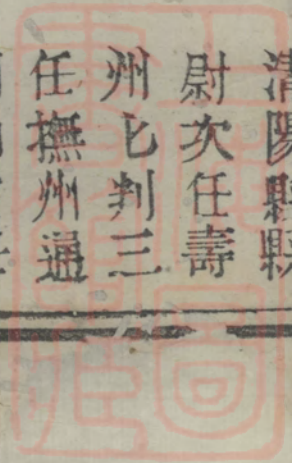 清陽縣縣
尉次任壽
州匕判三
任撫州通